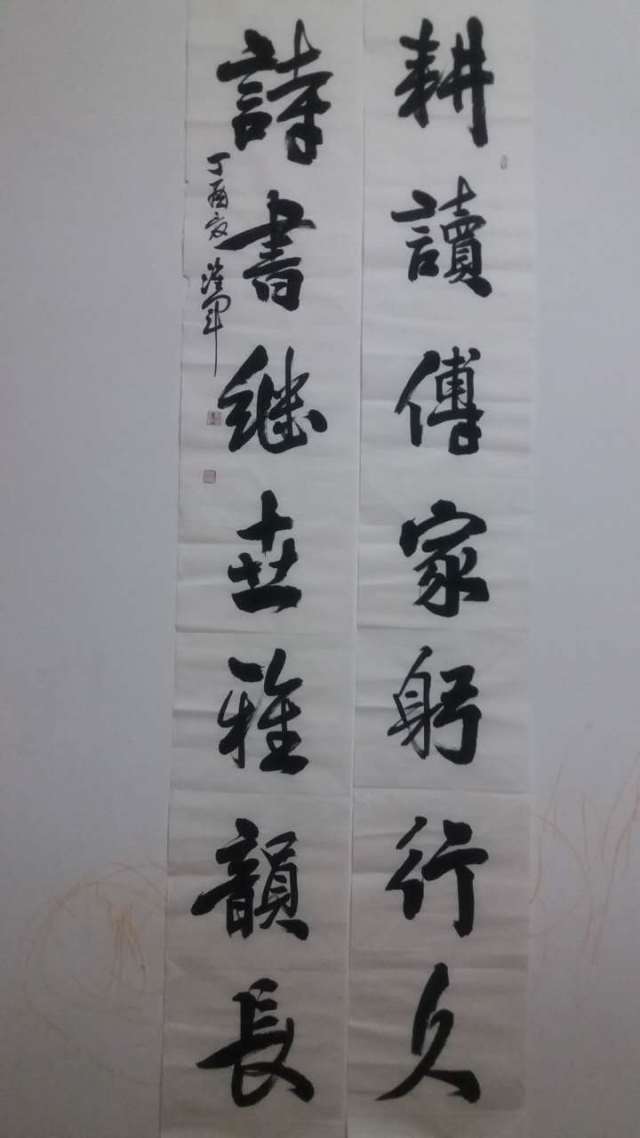 耕讀傳家躬行久
詩書繼世雅韻長
丁酉